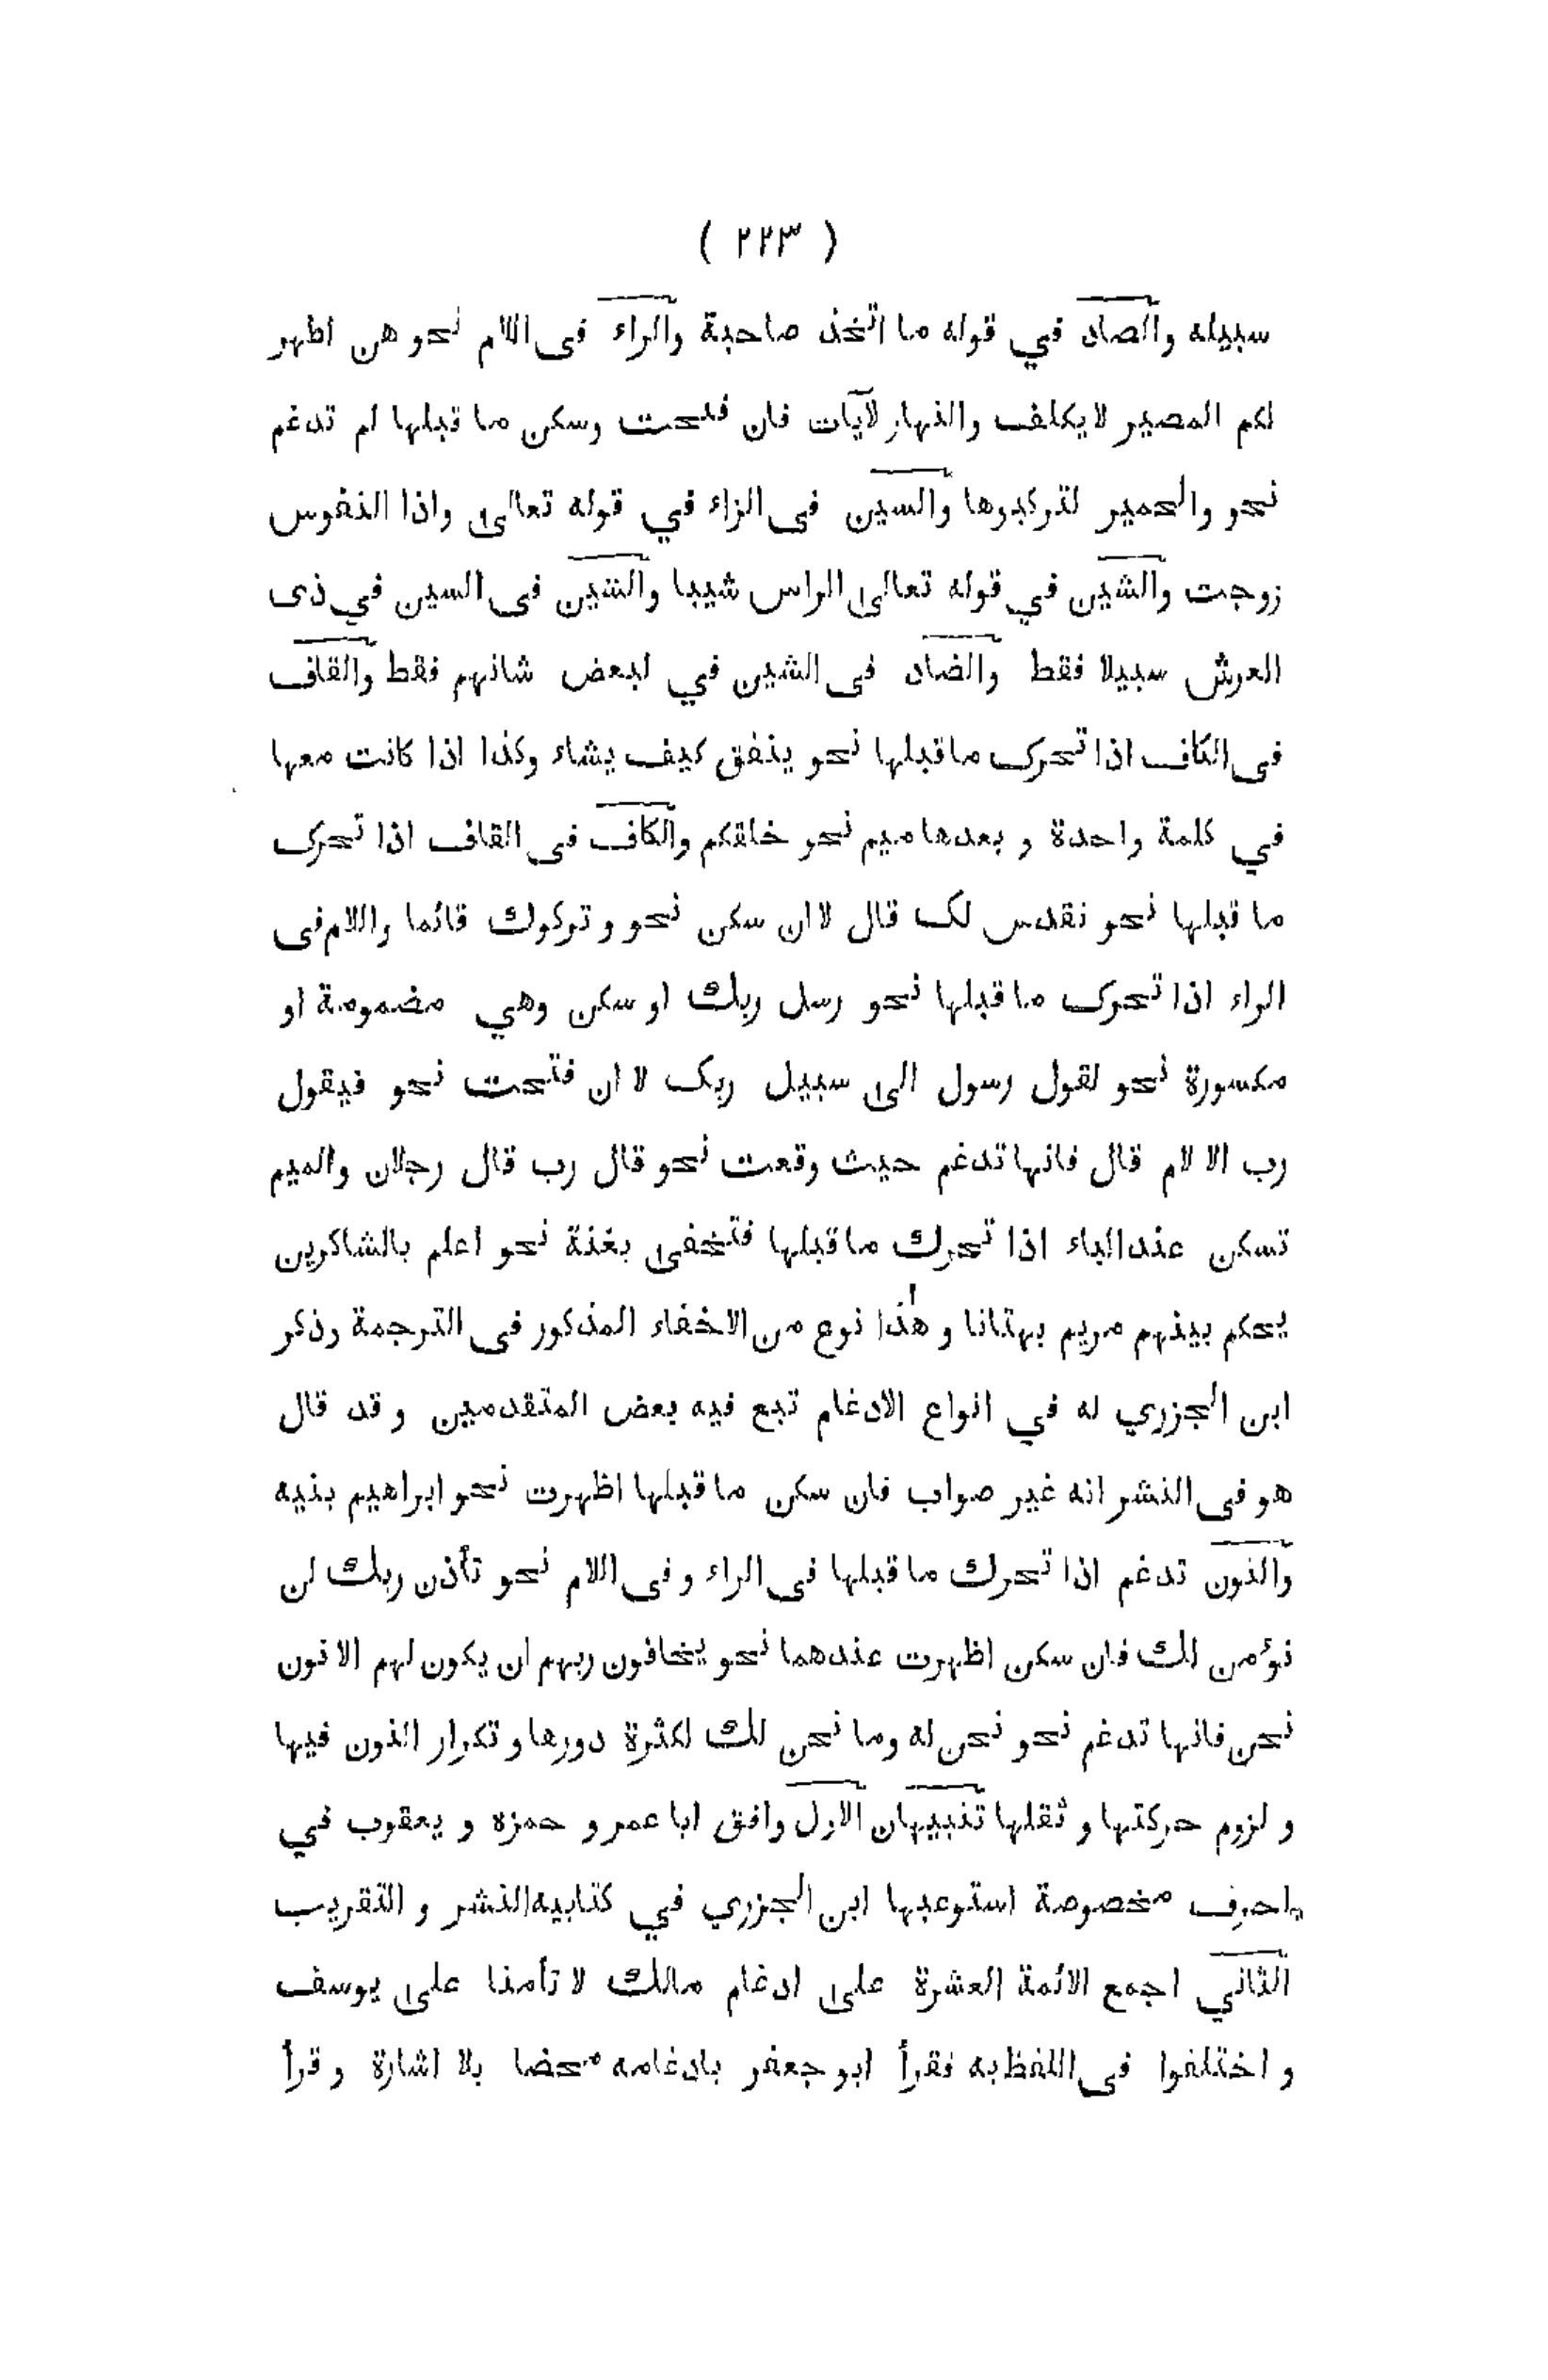 ( ٢٢٣ )
سبيله والصاد في قوله ما اتخذ صاحبة والراء فى اللام نحو هن اطهر
لكم المصير لا يكلف والنهار لآيات فان فتحت وسكن ما قبلها لم تدغم
نحو والحمير لتركبوها والسين فى الزاء في قوله تعالى واذا النفوس
زوجت والشين في قوله تعالى الراس شيبا والشين فى السين في ذى
العرش سبيلا فقط والضاد فى الشين في لبعض شانهم فقط والقاف
فى الكاف اذا تحرك ما قبلها نحو ينفق كيف يشاء وكذا اذا كانت معها
في كلمة واحدة و بعدها ميم نحو خلقكم والكاف فى القاف اذا تحرك
ما قبلها نحو نقدس لك قال لا ان سكن نحو و تركوك قائما واللام فى
الراء اذا تحرك ما قبلها نحو رسل ربك او سكن وهي مضمومة او
مكسورة نحو لقول رسول الى سبيل ربك لا ان فتحت نحو فيقول
رب الا لام قال فانها تدغم حيث وقعت نحو قال رب قال رجلان والميم
تسكن عند الباء اذا تحرك ما قبلها فتخفى بغنة نحو اعلم بالشاكرين
يحكم بينهم مريم بهتانا و هذا نوع من الاخفاء المذكور فى الترجمة وذكر
ابن الجزري له في انواع الادغام تبع فيه بعض المتقدمين و قد قال
هو فى النشر انه غير صواب فان سكن ما قبلها اظهرت نحو ابراهيم بنيه
والنون تدغم اذا تحرك ما قبلها فى الراء و فى اللام نحو تأذن ربك لن
نؤمن لك فان سكن اظهرت عندهما نحو يخافون ربهم ان يكون لهم الا نون
نحن فانها تدغم نحو نحن له وما نحن لك لكثرة دورها و تكرار النون فيها
و لزوم حركتها و ثقلها تنبيهان الاول وافق ابا عمرو حمزه و يعقوب في
احرف مخصوصة استوعبها ابن الجزري في كتابيه النشر و التقريب
الثاني اجمع الائمة العشرة على ادغام مالك لا تأمنا على يوسف
و اختلفوا فى اللفظ به فقرأ ابو جعفر بادغامه محضا بلا اشارة و قرأ